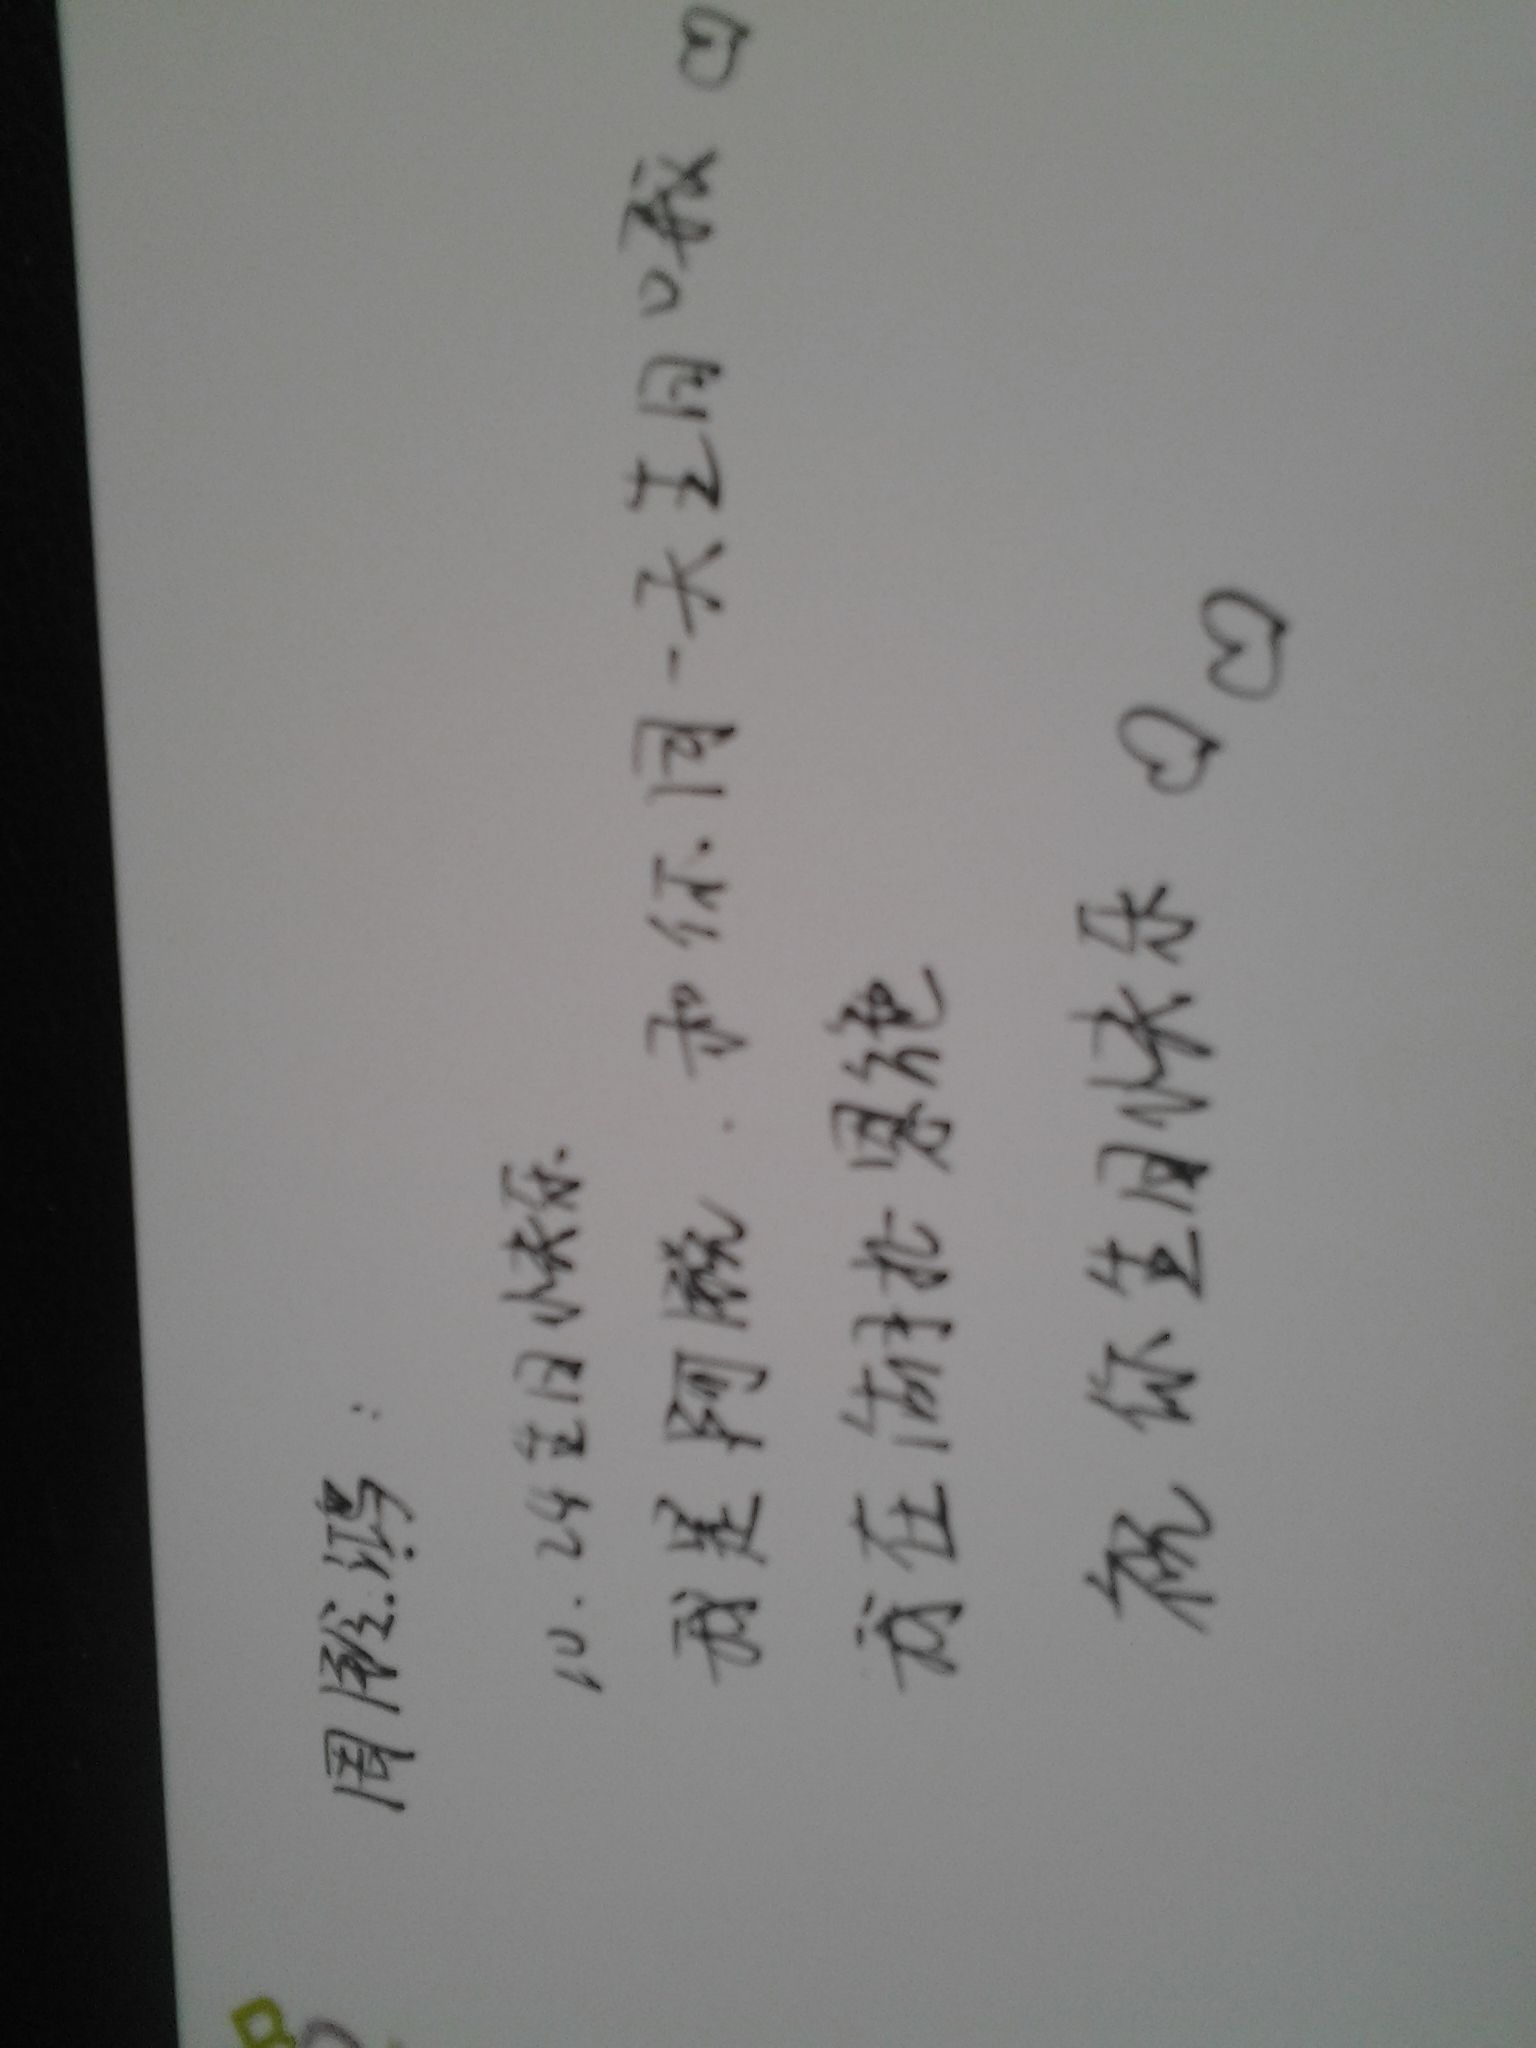 周隆鸿：
10.24生日快乐.
我是阿腾.和你同一天生日哦
我在海拉恩施
祝你生日快乐